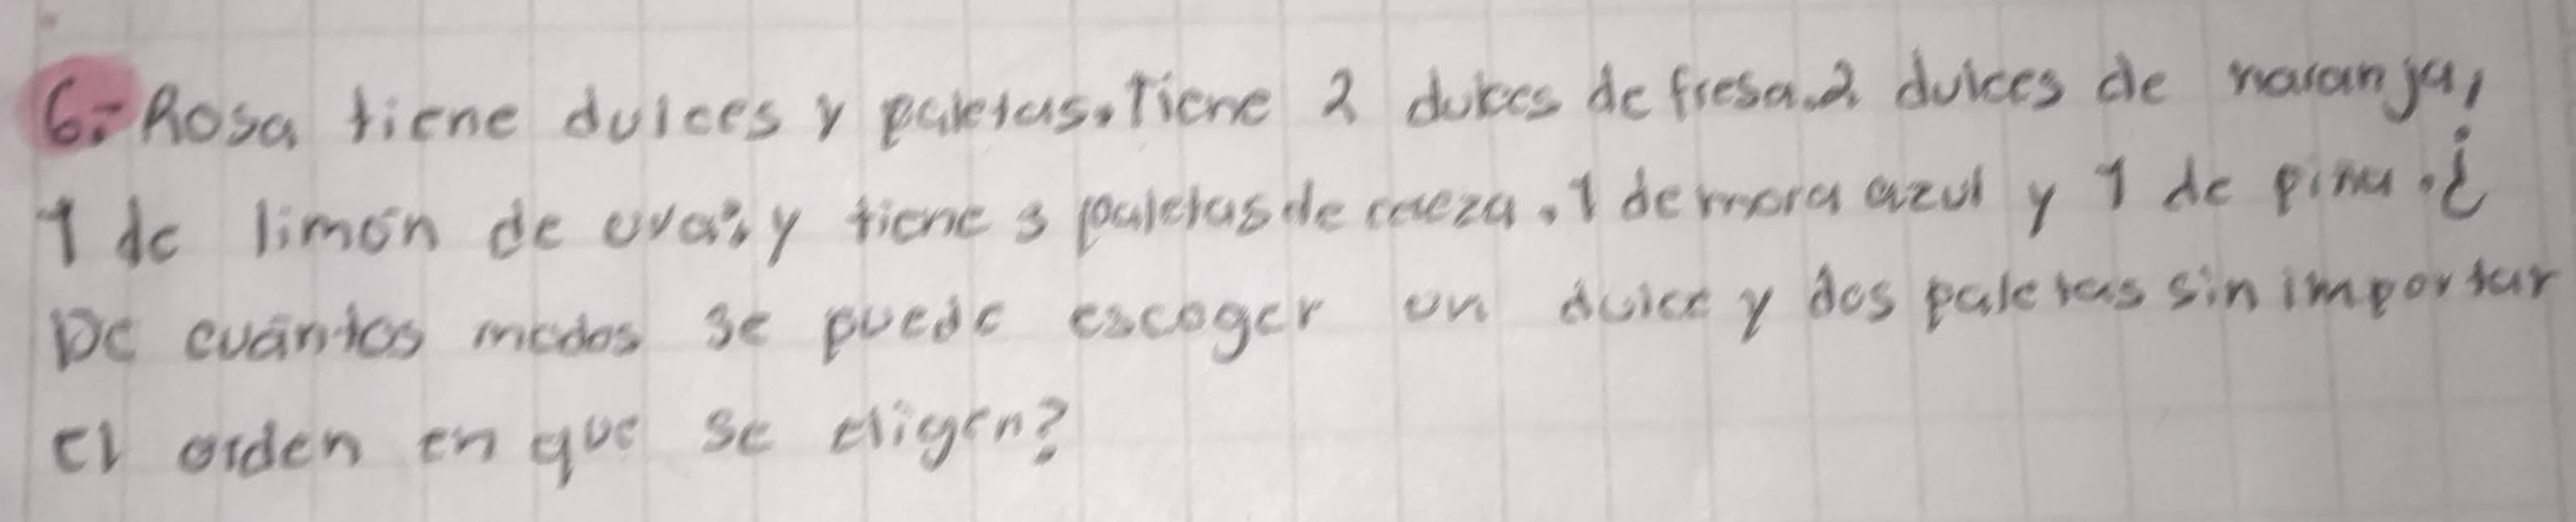 6.- Rosa tiene dulces y paletas. Tiene 2 dulces de fresa. 2 dulces de naranja,
1 de limón de uva; y tiene 3 paletas de cereza, 1 de mora azul y 1 de piña. ¿
De cuántos modos se puede escoger un dulce y dos paletas sin importar
el orden en que se eligen?